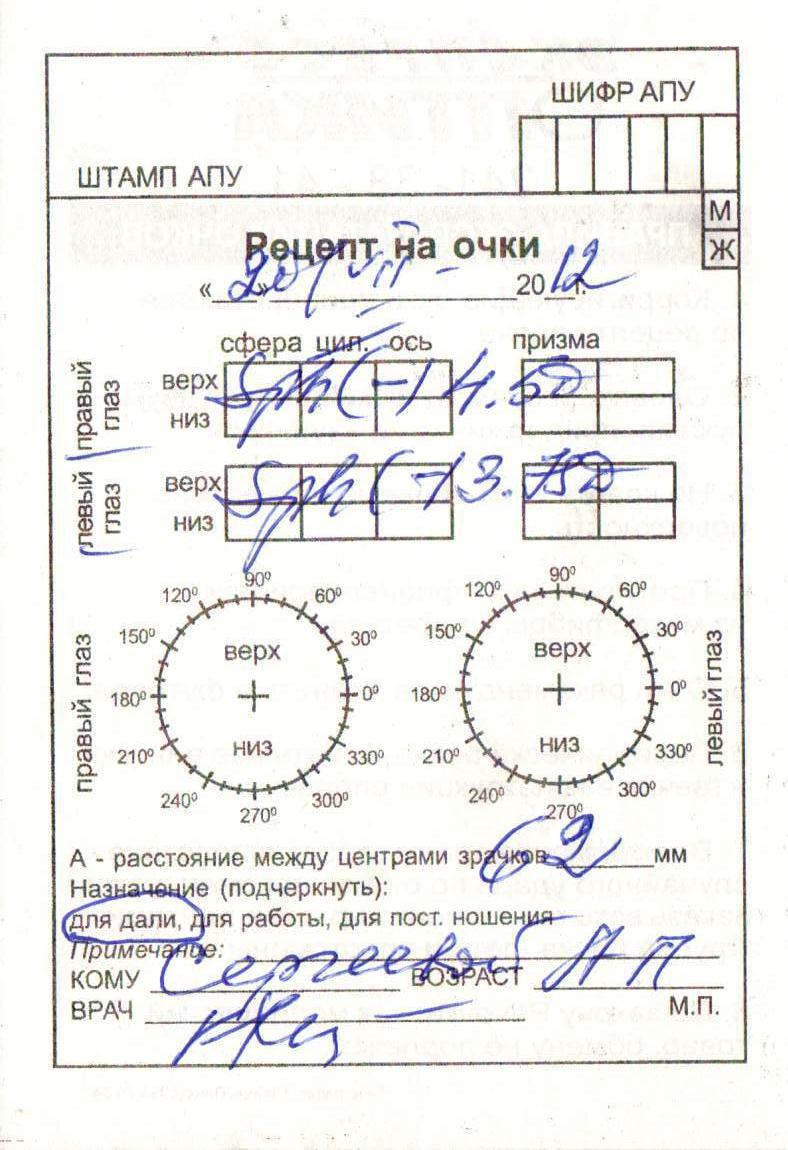 ШИФР АПУ
ШТАМП АПУ
М
Ж
Рецепт на очки
« » VII - 2012 г.
сфера цил. ось призма
правый глаз
верх Sph (-) 4.5D
низ
левый глаз
верх Sph (-) 3.75D
низ
правый глаз
90⁰ 120⁰ 60⁰ 150⁰ 30⁰ 180⁰ 0⁰ 210⁰ 330⁰ 240⁰ 300⁰ 270⁰
верх
низ
90⁰ 120⁰ 60⁰ 150⁰ 30⁰ 180⁰ 0⁰ 210⁰ 330⁰ 240⁰ 300⁰ 270⁰
верх
низ
левый глаз
А - расстояние между центрами зрачков 62 мм
Назначение (подчеркнуть):
для дали, для работы, для пост. ношения
Примечание:
КОМУ Сергеевой ВОЗРАСТ АП
ВРАЧ М.П.